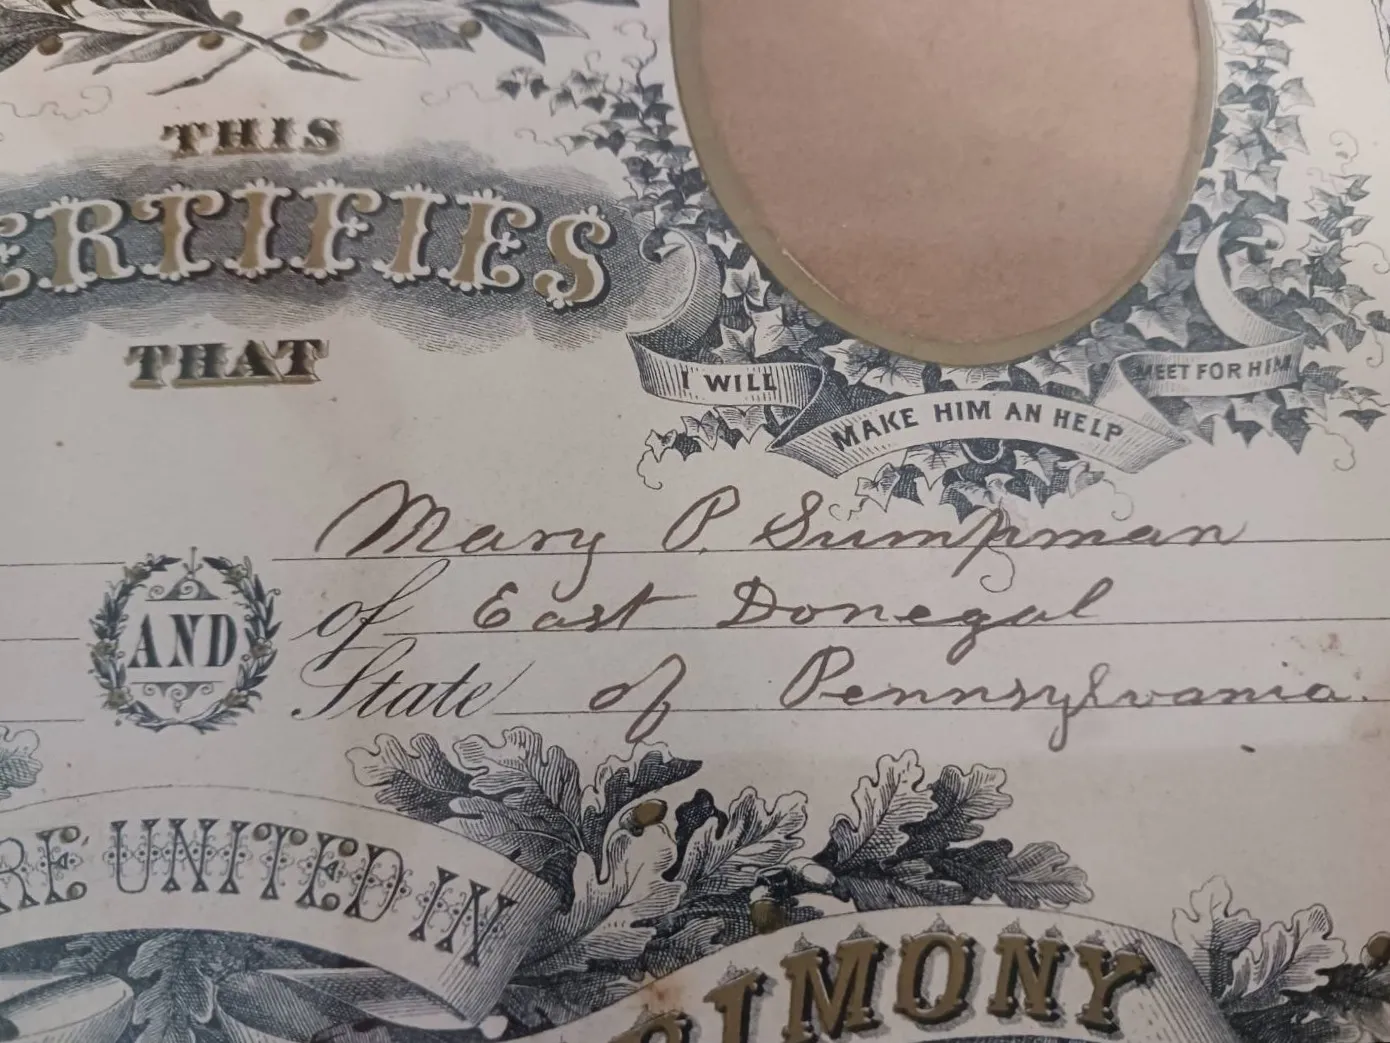 THIS
CERTIFIES
THAT
I WILL
MAKE HIM AN HELP
MEET FOR HIM
Mary P. Sumpman
AND
of East Donegal
State of Pennsylvania.
RE UNITED IN
IMONY